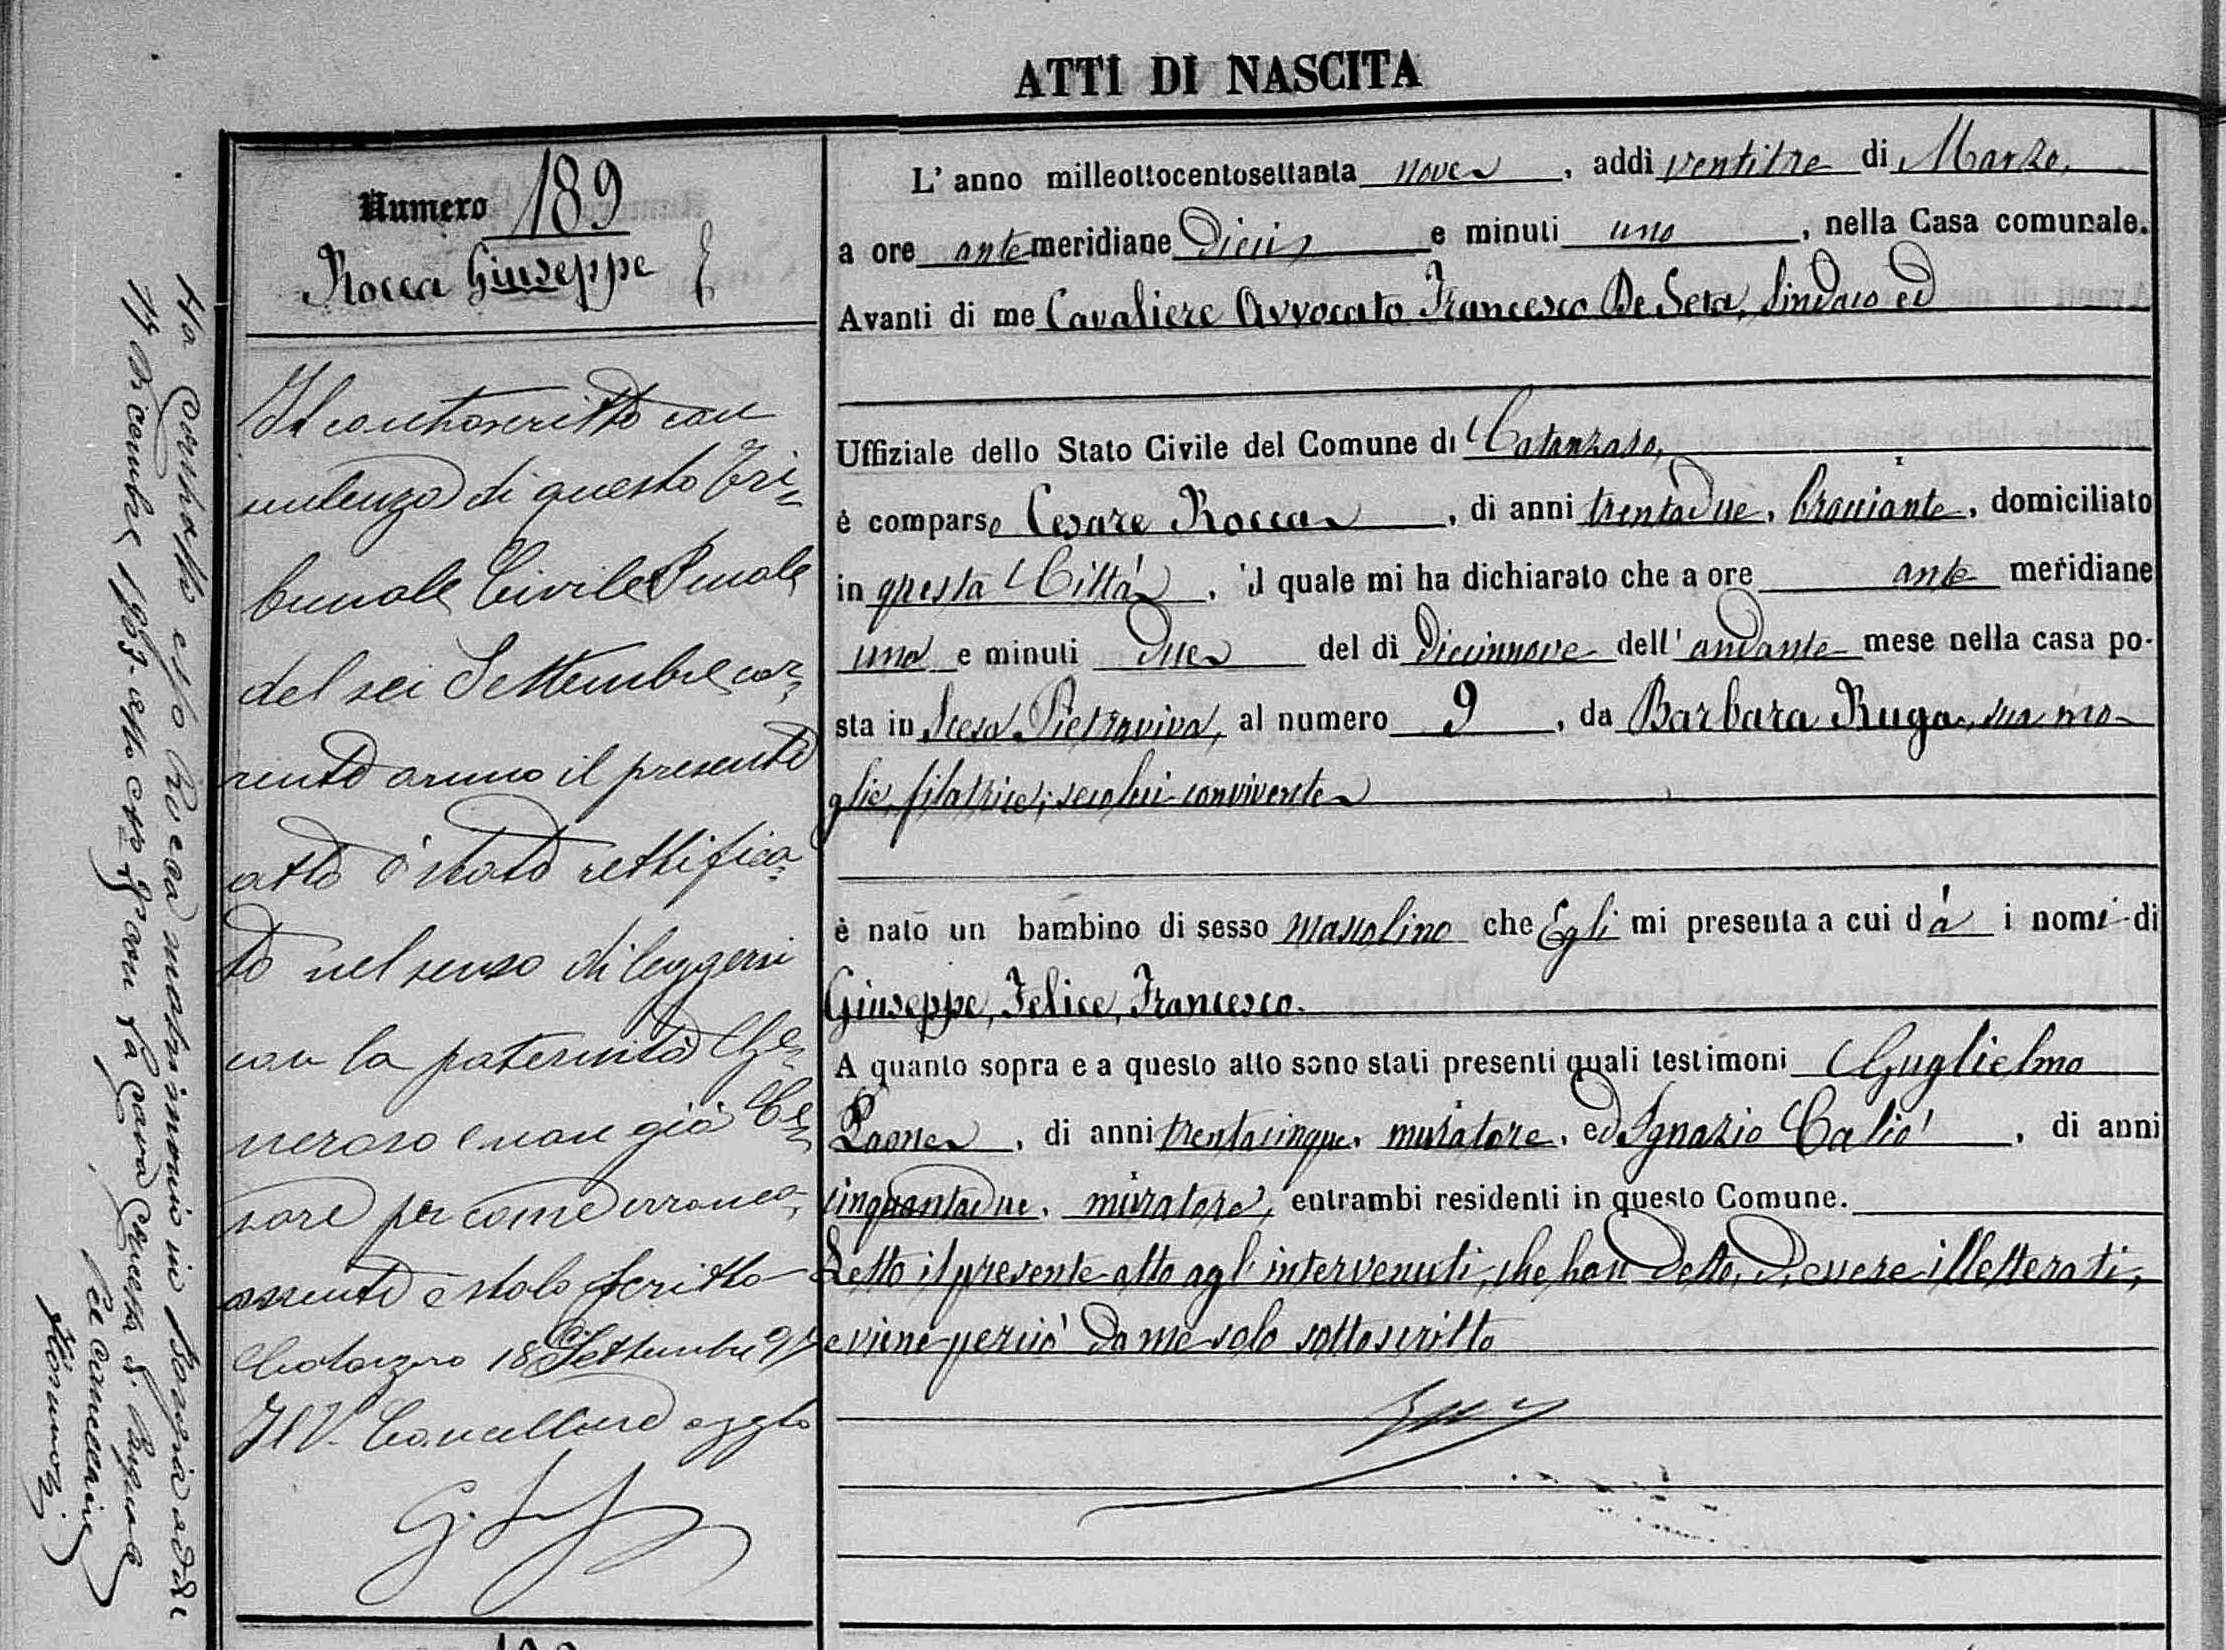 ATTI DI NASCITA
Numero 189
Rocca Giuseppe
Il controscritto con
sentenza di questo Tri=
bunale Civile Penale
del sei Settembre cor=
rente anno il presente
atto è stato rettifica=
to nel senso di leggersi
con la paternità Ge=
neroso e non già Ce=
sare per come erronea=
mente è stato scritto
Catanzaro 18 Settembre 97
Il V. Cancelliere aggto
Ha Contratto esso Rocca matrimonio in Borgia addì
Dicembre 1903 atto con la Cava Concetta di Pasquale
Il Cancelliere
L'anno milleottocentosettanta nove, addì ventitre di Marzo,
a ore antemeridiane Dieci e minuti uno, nella Casa comunale.
Avanti di me Cavaliere Avvocato Francesco De Seta, Sindaco ed
Uffiziale dello Stato Civile del Comune di Catanzaro,
è comparso Cesare Rocca, di anni trentadue, bracciante, domiciliato
in questa Città, il quale mi ha dichiarato che a ore ante meridiane
una e minuti due del dì diecinnove dell'andante mese nella casa po-
sta in Scesa Pietraviva, al numero 9, da Barbara Ruga, sua mo-
glie, filatrice, seco lui convivente
è nato un bambino di sesso mascolino che Egli mi presenta a cui dà i nomi di
Giuseppe, Felice, Francesco.
A quanto sopra e a questo atto sono stati presenti quali testimoni Guglielmo
Paone, di anni trentacinque, muratore, ed Ignazio Caliò, di anni
cinquantadue, muratore, entrambi residenti in questo Comune.
Letto il presente atto agl'intervenuti, che han detto, d'essere illetterati,
e viene perciò da me solo sottoscritto